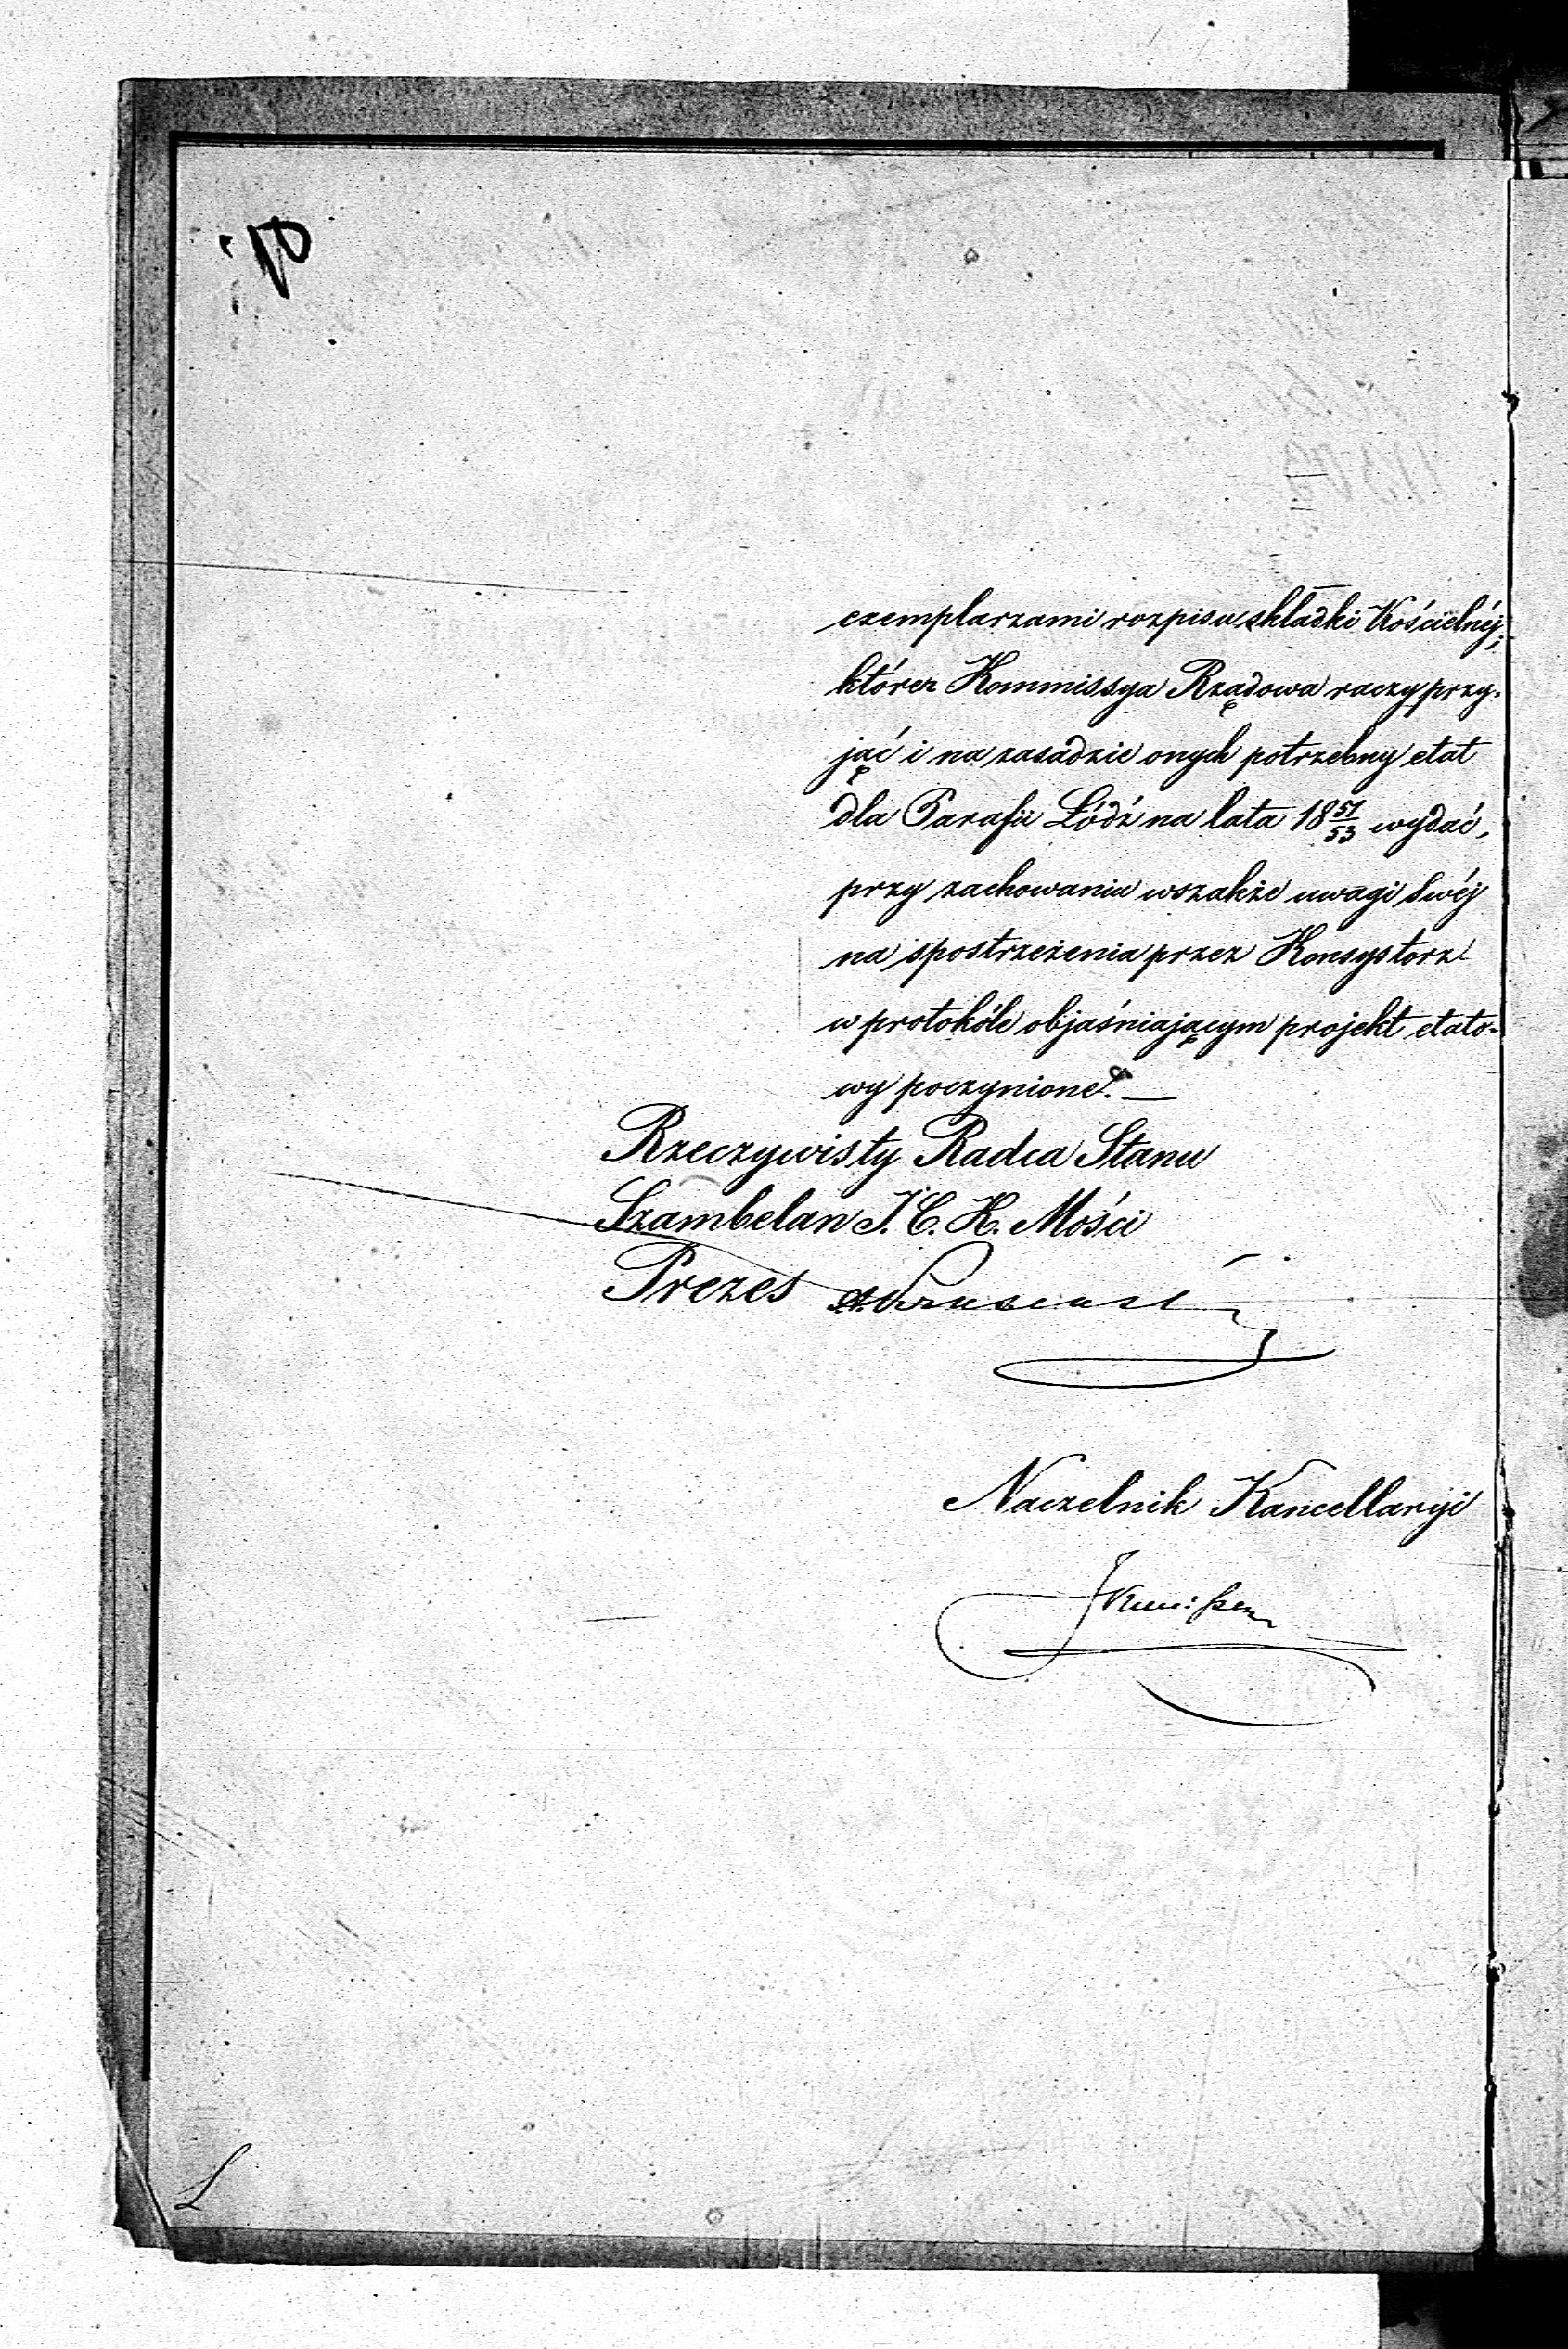 exemplarzami rozpisu składki Kościelnéj,
które Kommissya Rządowa raczy przy-
jąć i na zasadzie onych potrzebny etat
dla Parafii Łódź na lata 18 51/53 wydać,
przy zachowaniu wszakże uwagi swéj
na spostrzeżenia przez Konsystorz
w protokóle objaśniającym projekt etato-
wy poczynione. —
Rzeczywisty Radca Stanu
Szambelan J. C. K. Mości
Prezes
Naczelnik Kancellaryi